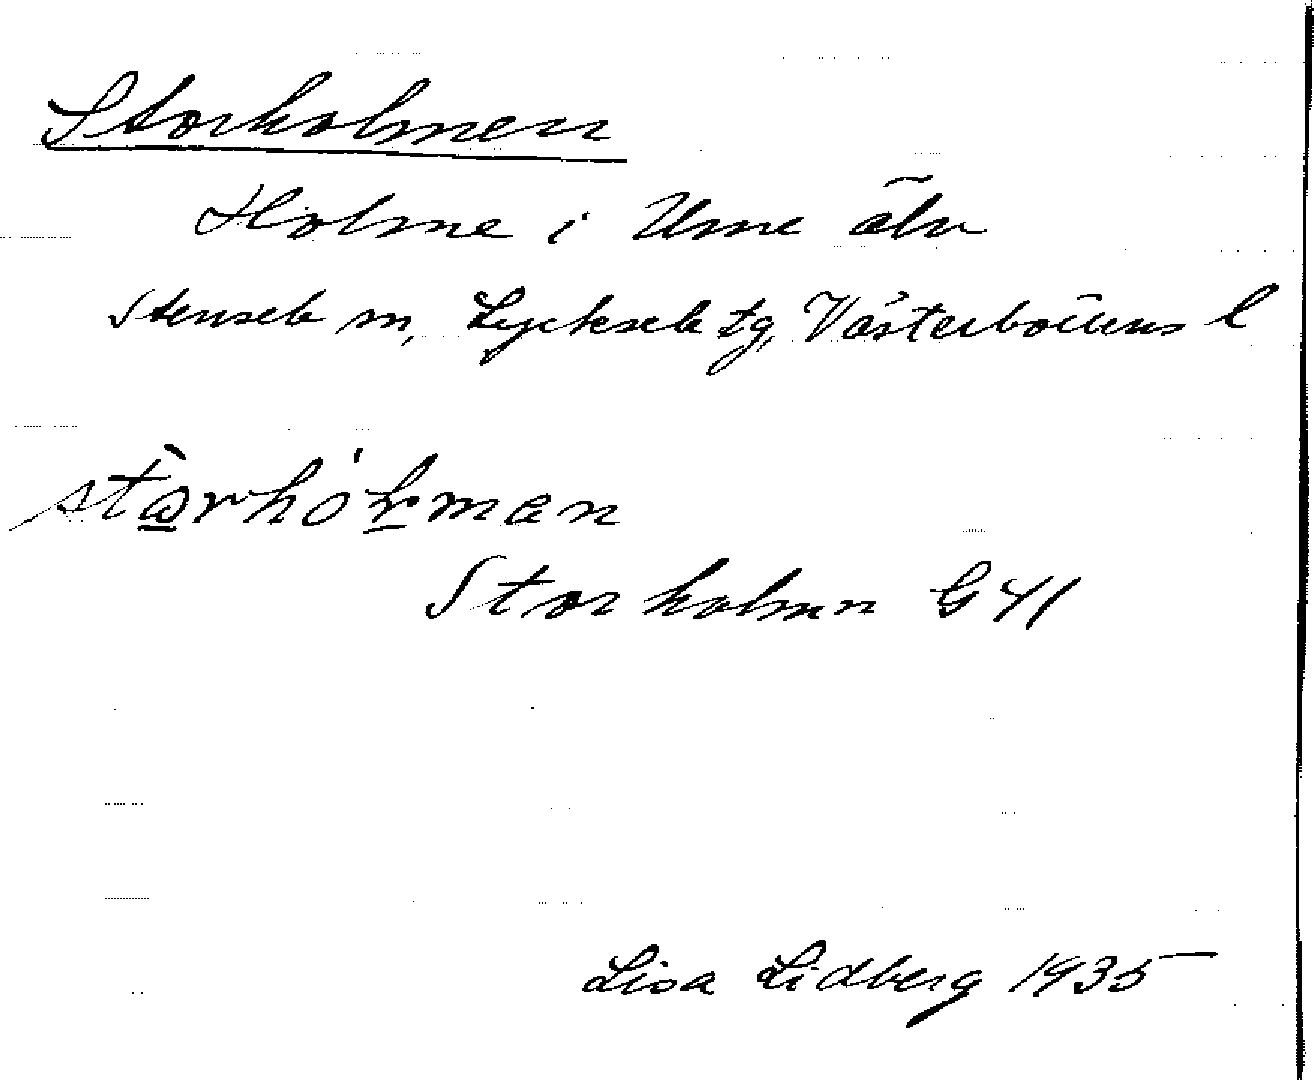 Storholmen
Holme i Ume älv
Stensele sn, Lycksele tg, Västerbottens l
Storholmn G 41
Lisa Lidberg 1935